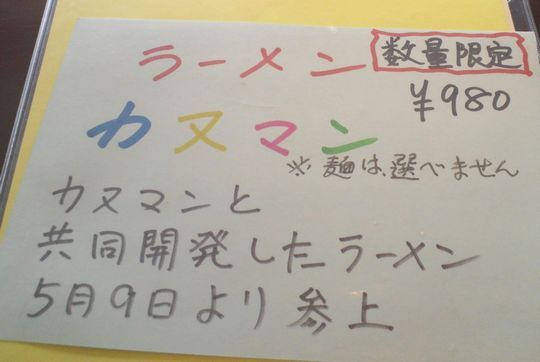 ラーメン 数量限定
¥980
カヌマン
※麺は選べません
カヌマンと
共同開発したラーメン
5月9日より参上